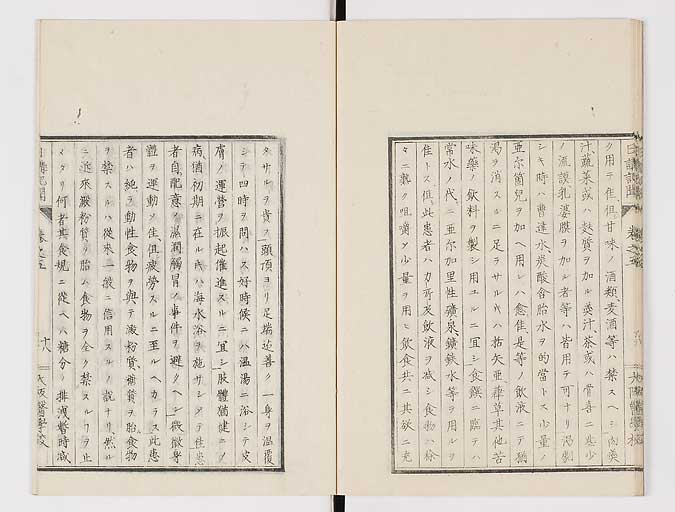 ク用テ佳但甘味ノ酒類麦酒等ハ禁スヘシ肉羹
汁蔬菜或ハ麩質ヲ加ル羹汁茶或ハ骨喜ニ些少
ノ流謨乳婆膜ヲ加ル者等ハ皆用テ可ナリ渇劇
シキ時ハ曹達水炭酸含胎水ヲ的當トス少量ノ
亜尔箇児ヲ加ヘ用レハ愈佳是等ノ飲液ニテ稱
渇ヲ消スルニ足ラサル片ハ括矢亜華草其他苦
味藥ノ飲料ヲ製シ用ユルニ宜シ食饌ニ臨テハ
常水ノ代ニ亜尔加里性礦泉鑛鉄水等ヲ用ルヲ
佳トス但此患者ハ力所及飲液ヲ減シ食物ハ徐
々ニ熟ク咀嚼シ少量ヲ用ヒ飲食共ニ其欲ニ充
日講記聞
卷之五
大阪醫學校
タサルヲ貴フ頭頂ヨリ足端迄善ク一身ヲ温覆
シテ四時ヲ問ハス好時候ニハ温湯ニ浴シテ皮
膚ノ運營ヲ振起催進スルニ宜シ肢體猶健ニシ
病猶初期ニ在ル片ハ海水浴ヲ施サシメテ佳患
者自配意シ濕潤觸冒ノ事件ヲ避クヘシ微微身
體ヲ運動シ佳但疲勞スルニ至ルヘカラス此患
者ハ純ヲ動性食物ヲ與テ澱粉質糖質ヲ胎食物
ヲ禁スルハ從來一般ニ信用スルノ説ナリ然ル
ニ近來澱粉質ヲ胎ハ食物ヲ全ク禁スルヿヲ止
メタリ何者其食規ニ從ヘハ糖分ノ排洩暫時減
日講記聞
卷之五
十八
大阪醫學校